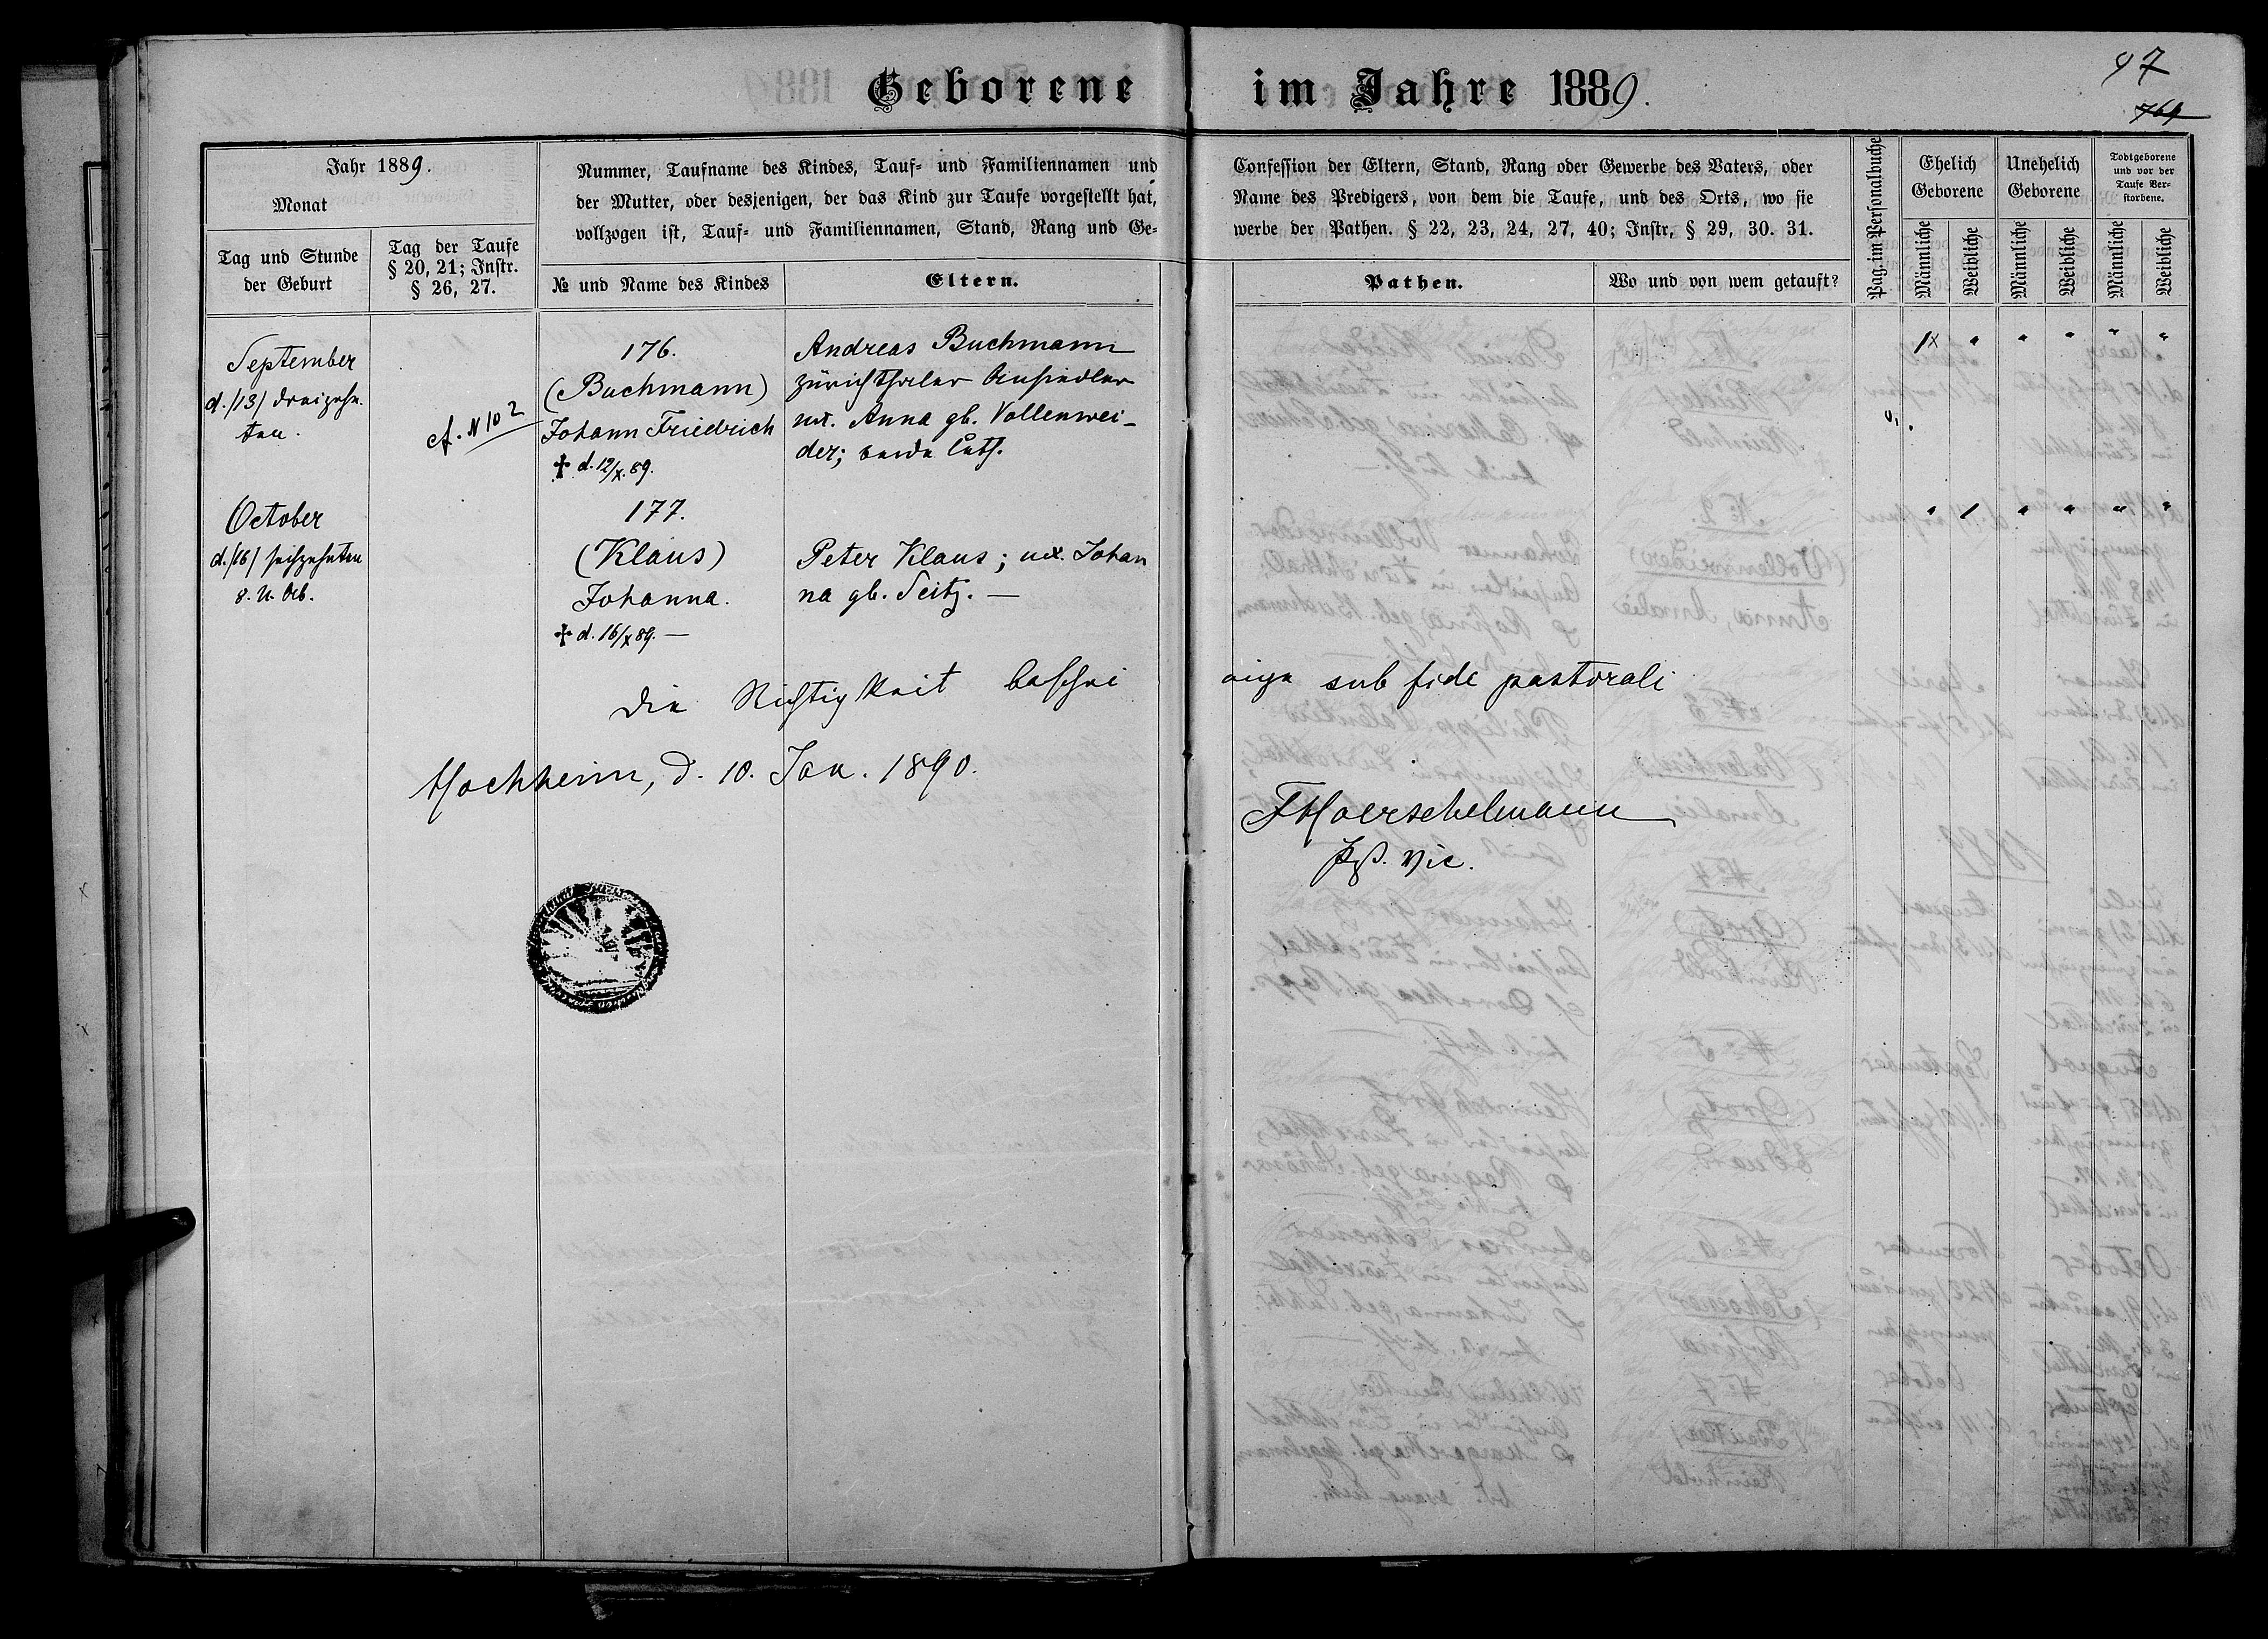 Geborene im Jahre 1889.
97
769
Jahr 1889.
Monat
Tag und Stunde
der Geburt
Tag der Taufe
§ 20, 21; Instr.
§ 26, 27.
Nummer, Taufname des Kindes, Tauf- und Familiennamen und
der Mutter, oder desjenigen, der das Kind zur Taufe vorgestellt hat,
vollzogen ist, Tauf- und Familiennamen, Stand, Rang und Ge-
№ und Name des Kindes
Eltern.
Confession der Eltern, Stand, Rang oder Gewerbe des Vaters, oder
Name des Predigers, von dem die Taufe, und des Orts, wo sie
werbe der Pathen. § 22, 23, 24, 27, 40; Instr, § 29, 30. 31.
Pathen.
Wo und von wem getauft?
Pag. im Personalbuche
Ehelich
Geborene
Unehelich
Geborene
Todtgeborene
und vor der
Taufe Ver-
storbene.
Männliche
Weibliche
Männliche
Weibliche
Männliche
Weibliche
September
d. /13/ dreizehn-
ten.
cf. N 102
176.
(Buchmann)
Johann Friedrich
✝ d. 12/X. 89.
Andreas Buchmann
zürichthaler Ansiedler
ux. Anna gb. Vollenwei-
der; beide luth.
October
d. /16/ sechzehnten
8. U. Ab.
177.
(Klaus)
Johanna.
✝ d. 16/X 89. —
Peter Klaus; ux. Johan
na gb. Seitz. —
Die Richtigkeit beschei
nige sub fide pastorali
Hochheim, d. 10. Jan. 1890.
FHoerschelmann
Pst. vic.